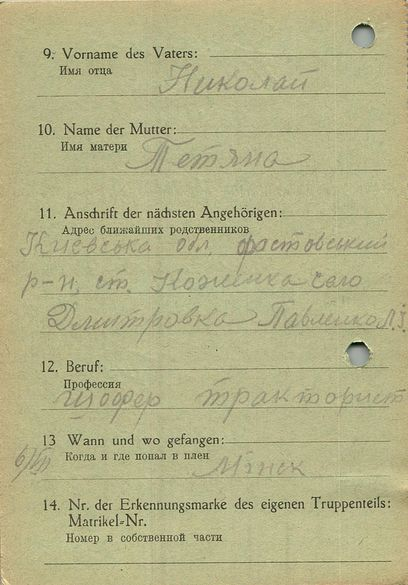 9. Vorname des Vaters:
Имя отца
Николай
10. Name der Mutter:
Имя матери
Тетяна
11. Anschrift der nächsten Angehörigen:
Адрес ближайших родственников
Киевська обл. фастовський
р-н, ст. Кожанка село
Дмитровка Павленко
12. Beruf:
Профессия
шофер тракторист
13 Wann und wo gefangen:
Когда и где попал в плен
6/VII Мінск
14. Nr. der Erkennungsmarke des eigenen Truppenteils:
Matrikel-Nr.
Номер в собственной части